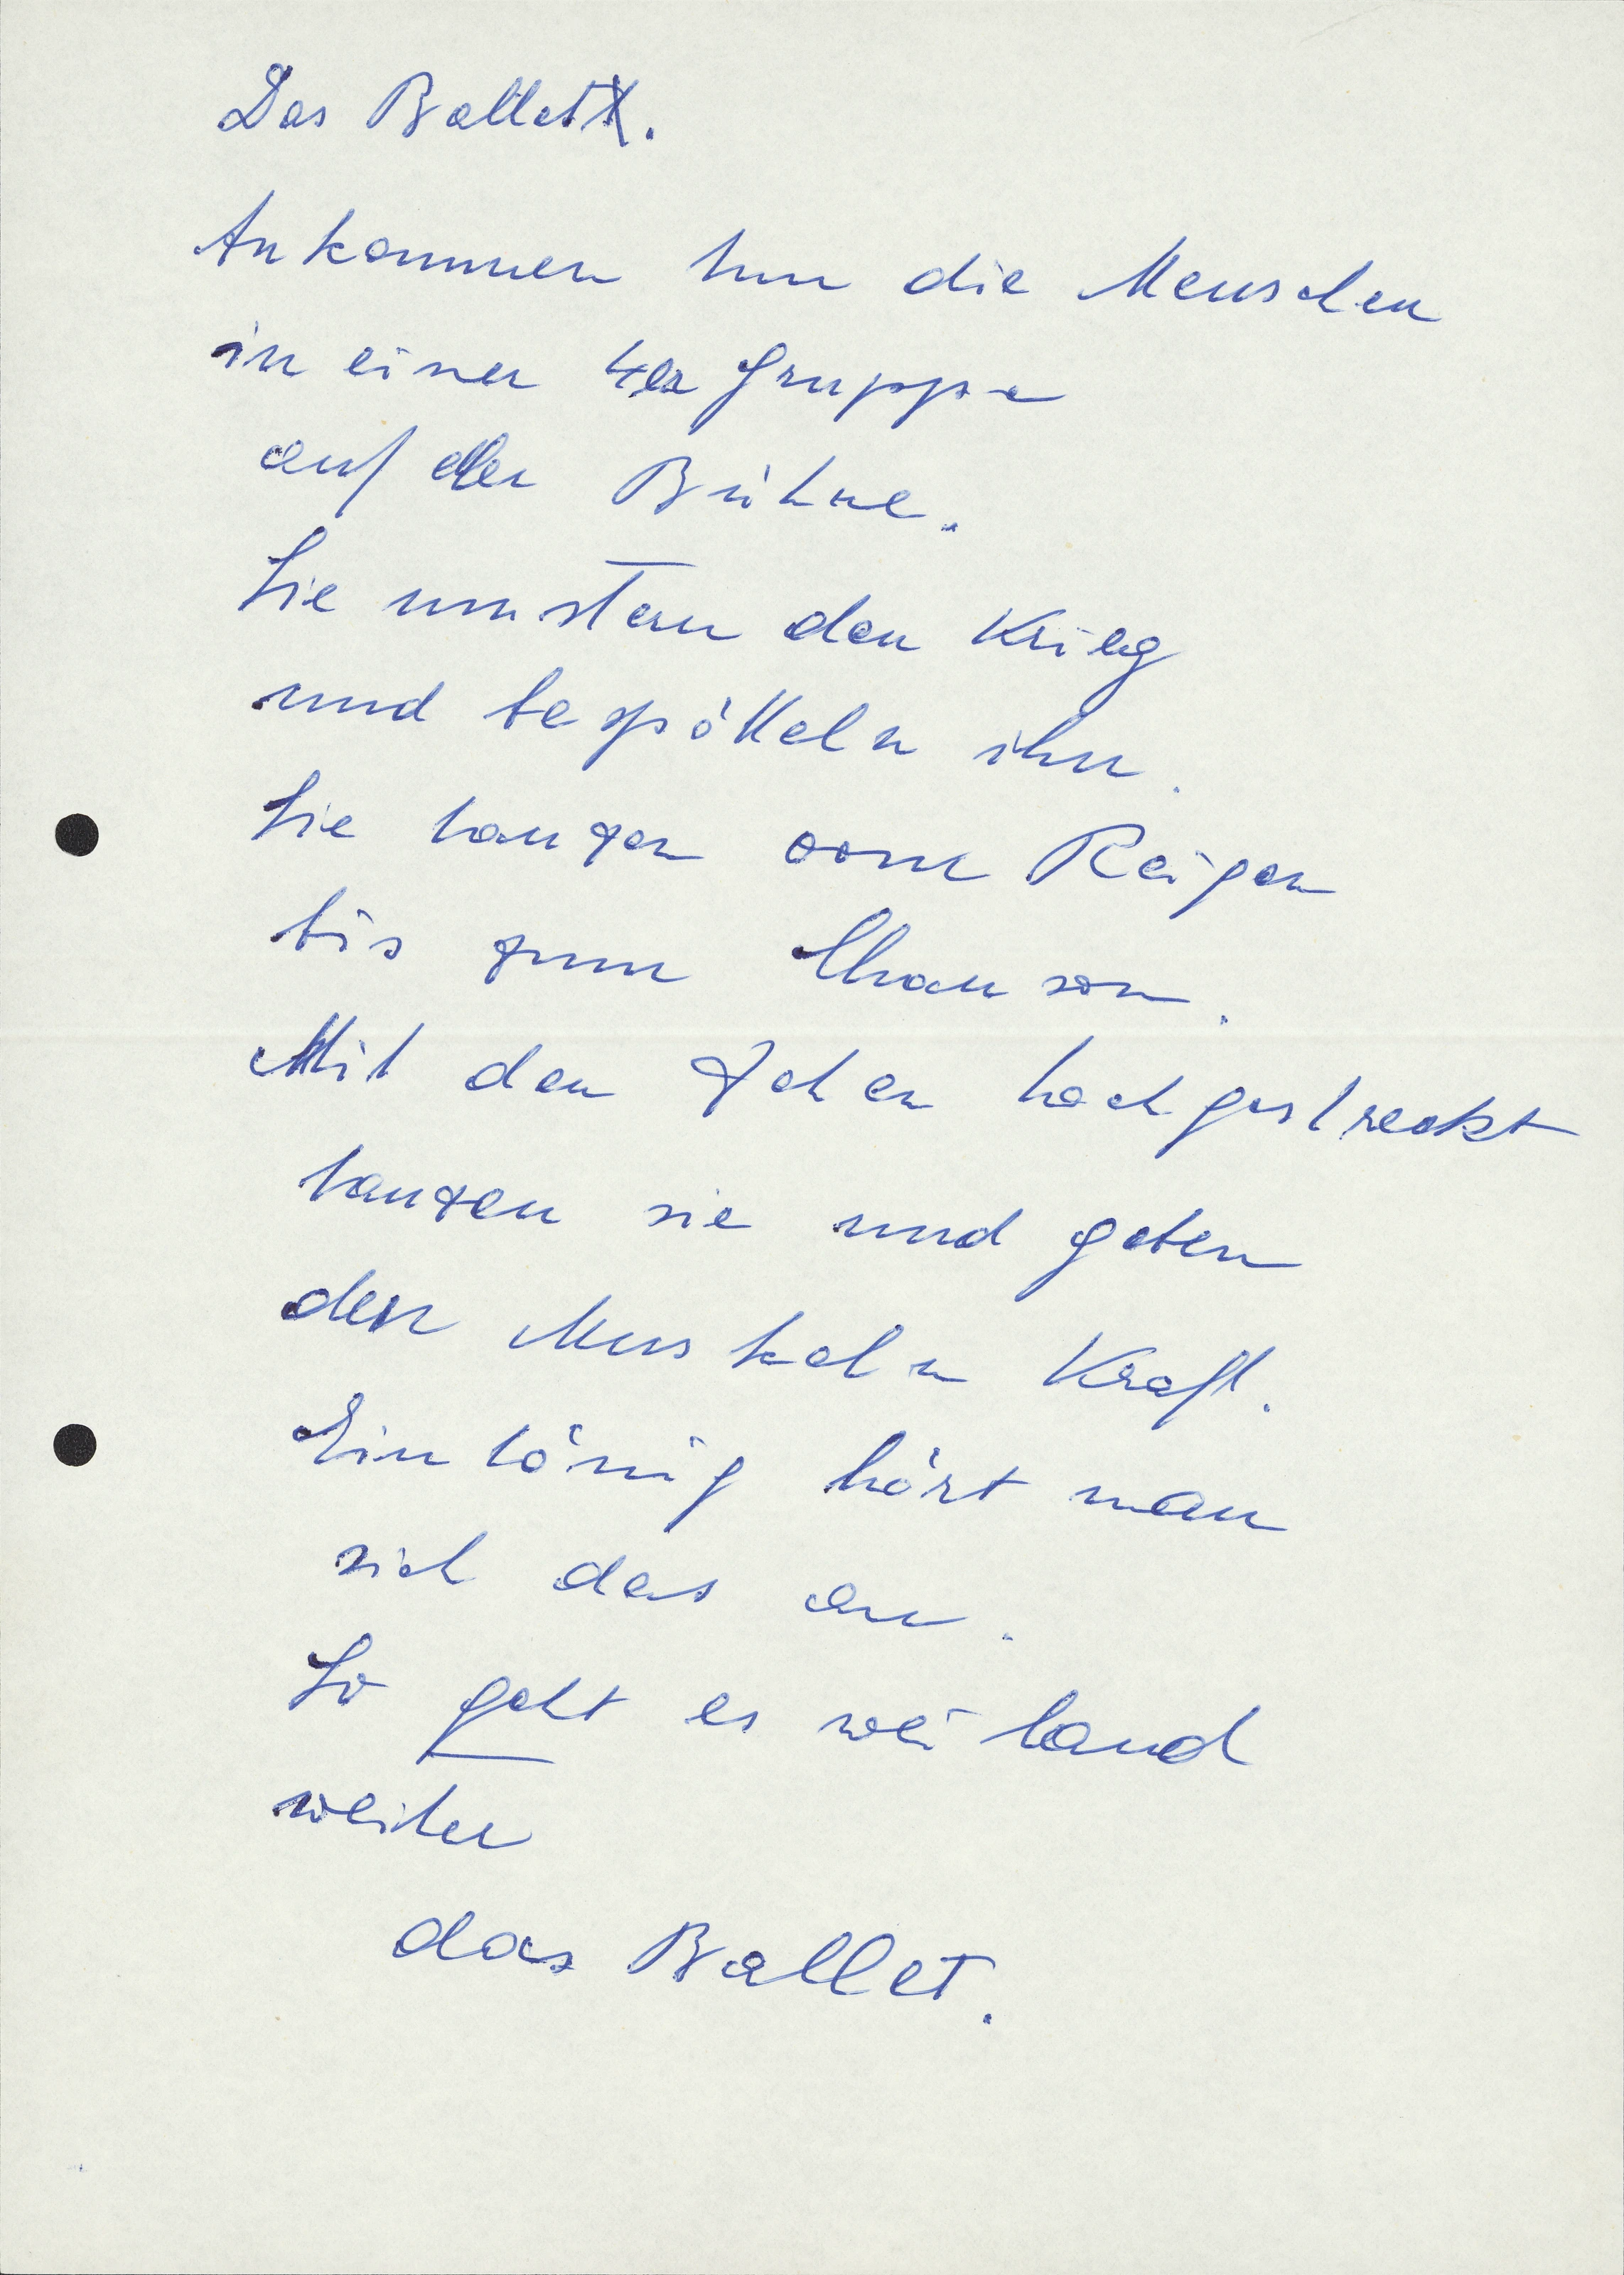 Das Ballet.
Ankommen tun die Menschen
in einer 4er Gruppe
auf der Bühne.
Sie mustern den Krieg
und bespötteln ihn.
Sie tanzen vom Reigen
bis zum Chanson.
Mit den Zehen hochgestreckt
tanzen sie und geben
den Muskeln Kraft.
Eintönig hört man
sich das an.
So geht es weiland
weiter
das Ballet.